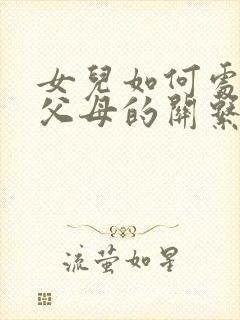 女兒如何處
父母的關繫
流螢如星